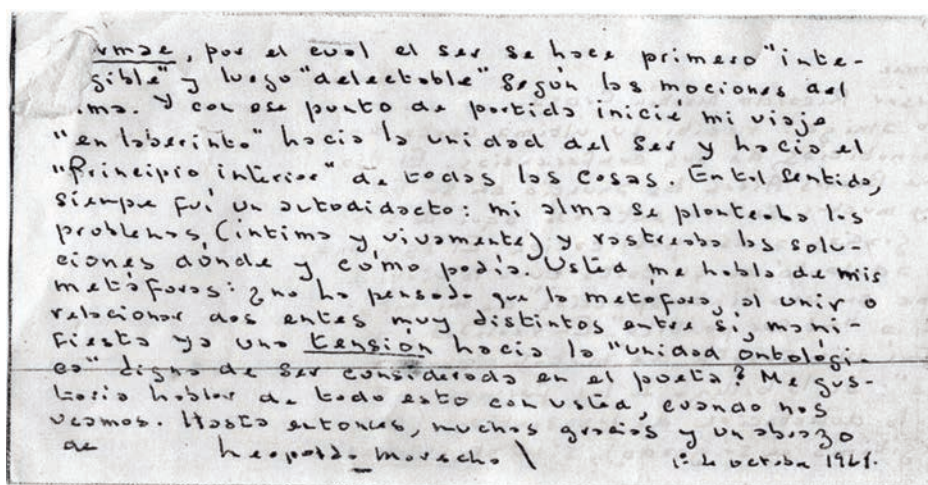 rmae, por el cual el ser se hace primero "inte-
gible" y luego "delectable" según las mociones del
ma. Y con ese punto de partida inicié mi viaje
"en laberinto" hacia la unidad del Ser y hacia el
"Principio interior" de todas las cosas. En tal sentido,
siempre fuí un autodidacto: mi alma se planteaba los
problemas (íntima y vivamente) y rastreaba las solu-
ciones dónde y cómo podía. Usted me habla de mis
metáforas: ¿no ha pensado que la metáfora, al unir o
relacionar dos entes muy distintos entre sí, mani-
fiesta ya una tensión hacia la "unidad ontológi-
ca" digna de ser considerada en el poeta? Me gus-
taría hablar de todo esto con usted, cuando nos
veamos. Hasta entonces, muchas gracias y un abrazo
de Leopoldo Marechal
octubre